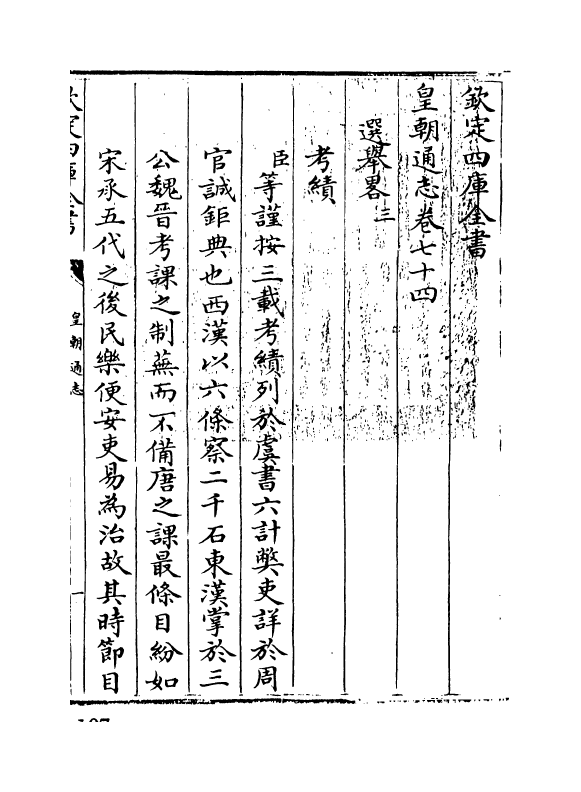 欽定四庫全書
皇朝通志卷七十四
選舉畧三
考績
臣等謹按三載考績列於虞書六計弊吏詳於周
官誠鉅典也西漢以六條察二千石東漢掌於三
公魏晉考課之制蕪而不備唐之課最條目紛如
宋承五代之後民樂便安吏易為治故其時節目
欽定四庫全書
皇朝通志
一